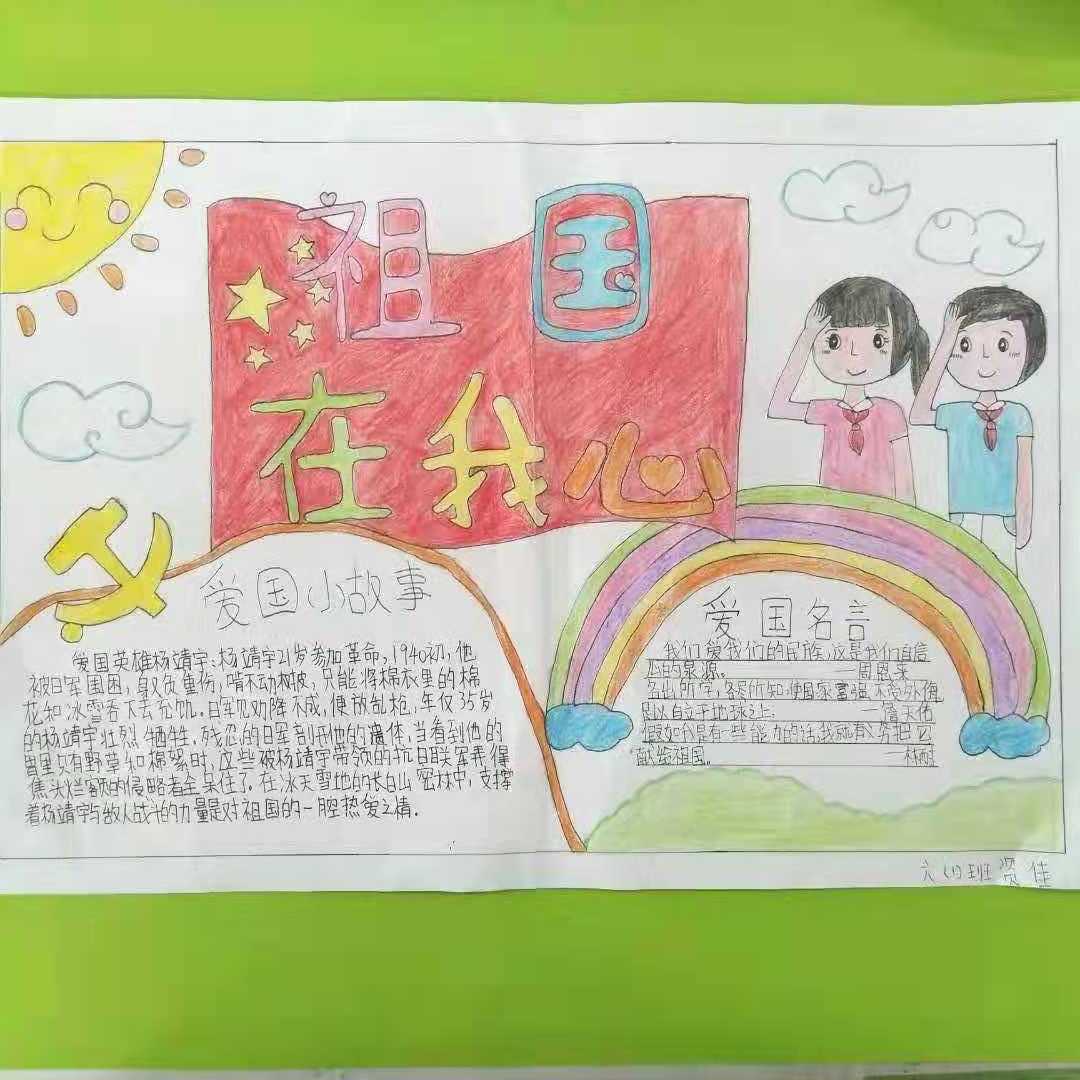 祖国
在我心
爱国小故事
爱国英雄杨靖宇:杨靖宇21岁参加革命,1940初,他
被日军围困,身负重伤,啃不动树皮,只能将棉衣里的棉
花和冰雪吞下去充饥。日军见劝降不成,便放乱枪,年仅35岁
的杨靖宇壮烈牺牲。残忍的日军剖开他的遗体,当看到他的
胃里只有野草和棉絮时,这些被杨靖宇带领的抗日联军弄得
焦头烂额的侵略者全呆住了。在冰天雪地的长白山密林中,支撑
着杨靖宇与敌人战斗的力量是对祖国的一腔热爱之情。
爱国名言
我们爱我们的民族,这是我们自信
心的泉源。——周恩来
各出所学,各尽所知,使国家富强不受外侮,
足以自立于地球之上。——詹天佑
假如我是有一些能力的话,我就有义务
献给祖国。——林
六 班 贤佳